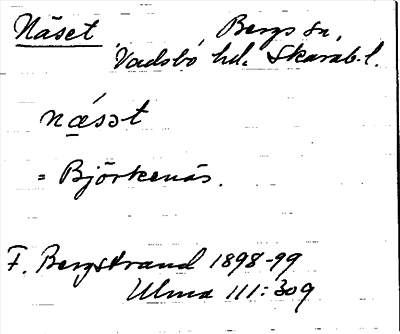 Näset Bergs sn,
Vadsbo hd. Skarab.l.
nä́sət
= Björkenäs.
F. Bergstrand 1898-99
Ulma 111:309